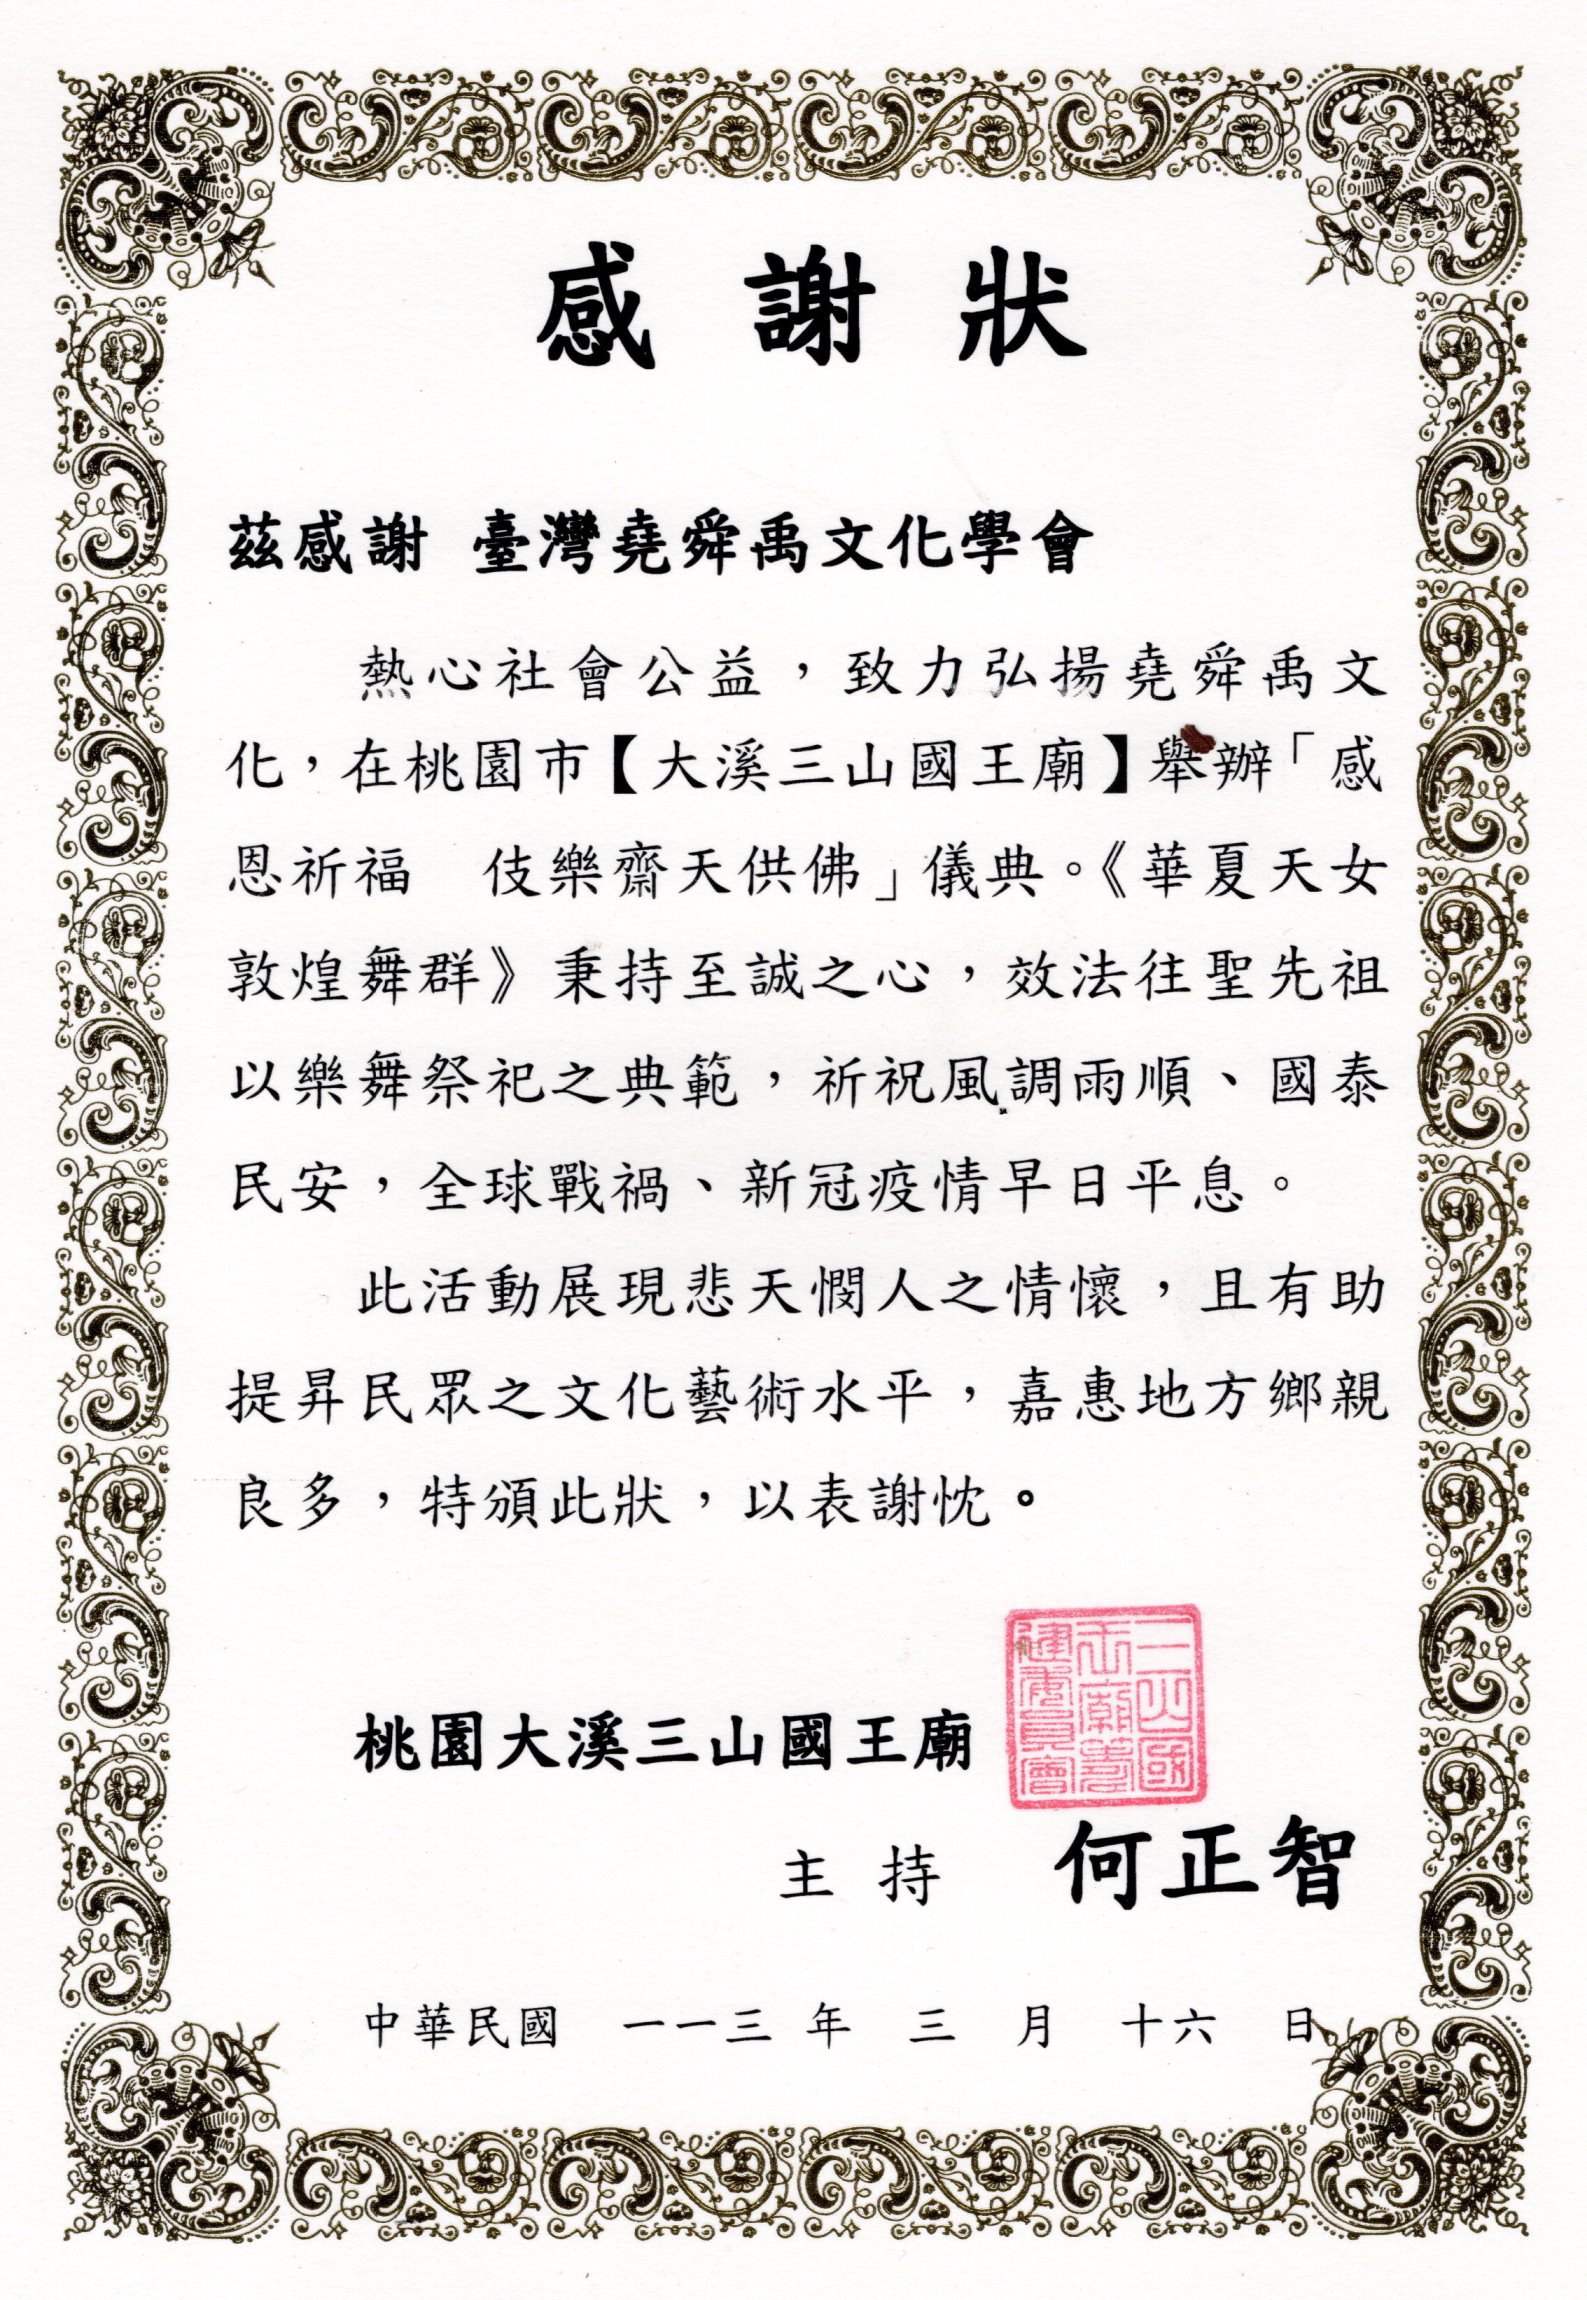 感謝狀
茲感謝 臺灣堯舜禹文化學會
熱心社會公益，致力弘揚堯舜禹文
化，在桃園市【大溪三山國王廟】舉辦「感
恩祈福　伎樂齋天供佛」儀典。《華夏天女
敦煌舞群》秉持至誠之心，效法往聖先祖
以樂舞祭祀之典範，祈祝風調雨順、國泰
民安，全球戰禍、新冠疫情早日平息。
此活動展現悲天憫人之情懷，且有助
提昇民眾之文化藝術水平，嘉惠地方鄉親
良多，特頒此狀，以表謝忱。
三山國
王廟籌
建委員會
桃園大溪三山國王廟
主持　何正智
中華民國　一一三 年　三　月　十六　日